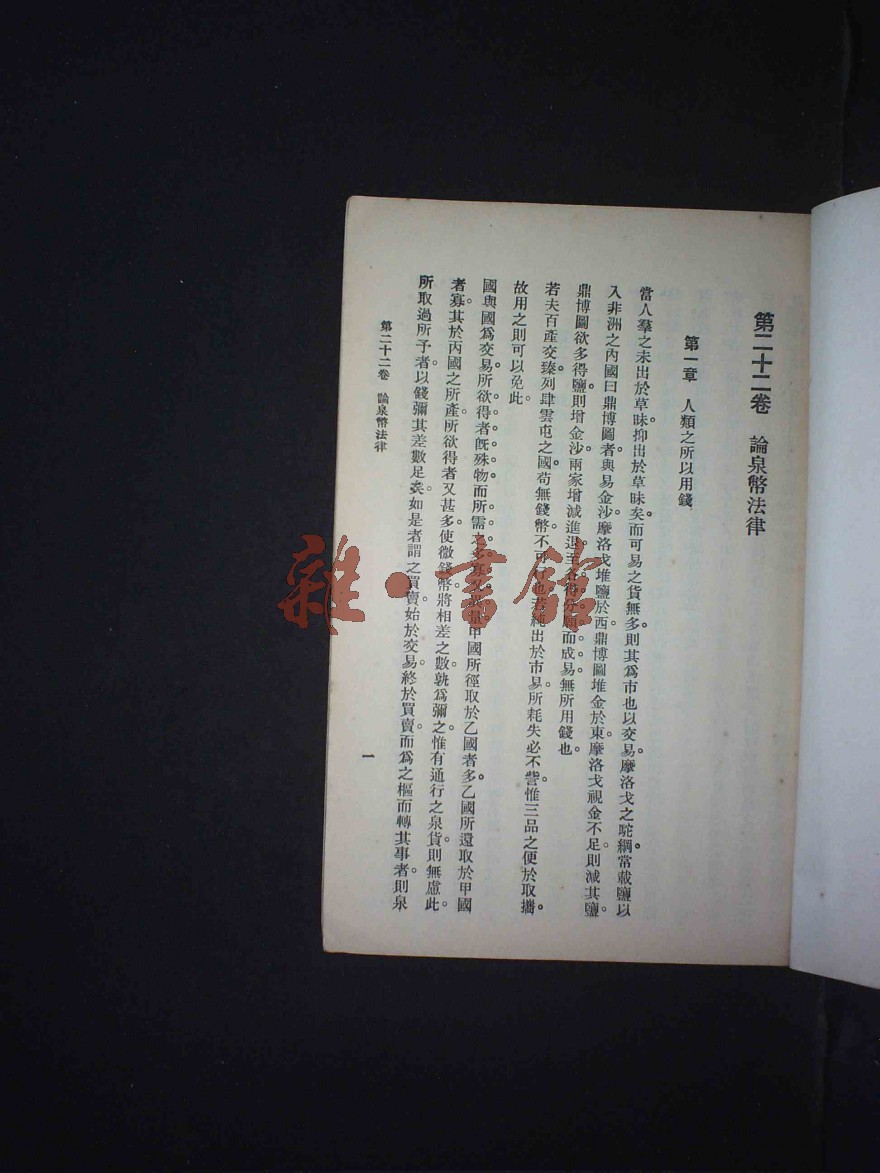 第二十二卷　論泉幣法律
第一章　人類之所以用錢
當人羣之未出於草昧。抑出於草昧矣。而可易之貨無多。則其爲市也以交易。摩洛戈之駝綱。常載鹽以
入非洲之內國曰鼎博圖者。與易金沙。摩洛戈堆鹽於西。鼎博圖堆金於東。摩洛戈視金不足。則減其鹽。
鼎博圖欲多得鹽。則增金沙。兩家增減進退。至各得分願而成易。無所用錢也。
若夫百產交臻。列肆雲屯之國。苟無錢幣。不可行也。若純出於市易。所耗失必不訾。惟三品之便於取攜。
故用之則可以免此。
國與國爲交易。所欲得者旣殊物。而所需之多寡又異量。甲國所徑取於乙國者多。乙國所還取於甲國
者寡。其於丙國之所產。所欲得者又甚多。使微錢幣。將相差之數。孰爲彌之。惟有通行之泉貨。則無慮此。
所取過所予者。以錢彌其差數足矣。如是者謂之買賣。始於交易。終於買賣。而爲之樞而轉其事者。則泉
第二十二卷　論泉幣法律
一
雜·書館